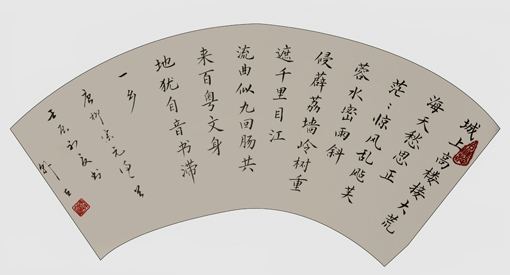 城上高楼接大荒
海天愁思正
茫〻惊风乱飐芙
蓉水密雨斜
侵薜荔墙岭树重
遮千里目江
流曲似九回肠共
来百粤文身
地犹自音书滞
一乡
唐柳宗元